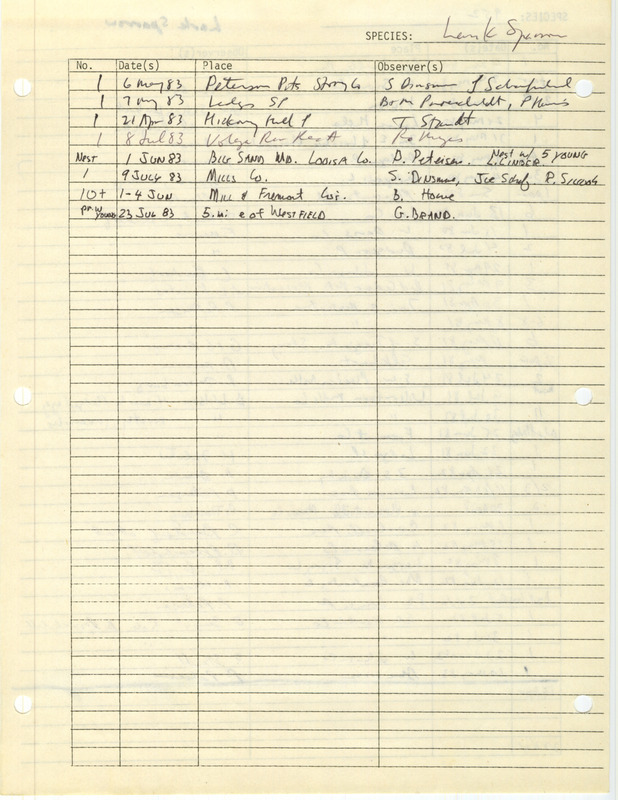 SPECIES: Lark Sparrow
No. Date(s) Place Observer(s)
1 6 May 83 Peterson Pits Story Co S Dinsmore J
1 7 May 83 Ledges SP
1 21 Apr 83 Hickory Hill P T Staudt
1 8 Jul 83 Volga River Rec A
NEST 1 JUN 83 BIG SAND MD. LOUISA CO. D. Petersen. NEST W/ 5 YOUNG
1 9 JULY 83 MILLS CO. S. DINSMORE,
10+ 1-4 JUN Mill & Fremont Co's. B. Howe
PR W YOUNG 23 JUL 83 5. mi e of WESTFIELD G. BRAND.